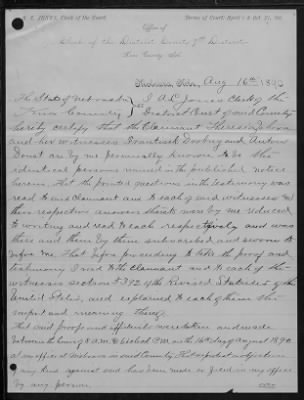 Clerk of the Court.
Terms of Court, April & Oct.
Office of
Clerk of the District Court, 9th District
Knox County, Neb.
Aug 16th 1890
The State of Nebraska
Knox County
I A. L. Jones Clerk of the
District Court of said County
hereby certify that the Claimant Theresia
and her witnesses Frantisek and Anton
are by me personally known to be the
identical persons named in the published notice
hereon. That the printed questions in the testimony was
read to said Claimant and to each of said witnesses and
their respective answers thereto was by me reduced
to writing and read to each respectively and was
then and there by them subscribed and sworn to
before me. That before proceeding to take the proof and
testimony I read to the claimant and to each of the
witnesses section 5392 of the Revised Statutes of the
United States, and explained to each of them the
import and meaning thereof.
That said proofs and affidavits were taken and made
between the hours of 8 A.M. & 6 o'clock P.M. on the 16th day of August 1890
at my office at in said County. That no protest or objection
of any kind against said has been made or filed in my office
by any person.